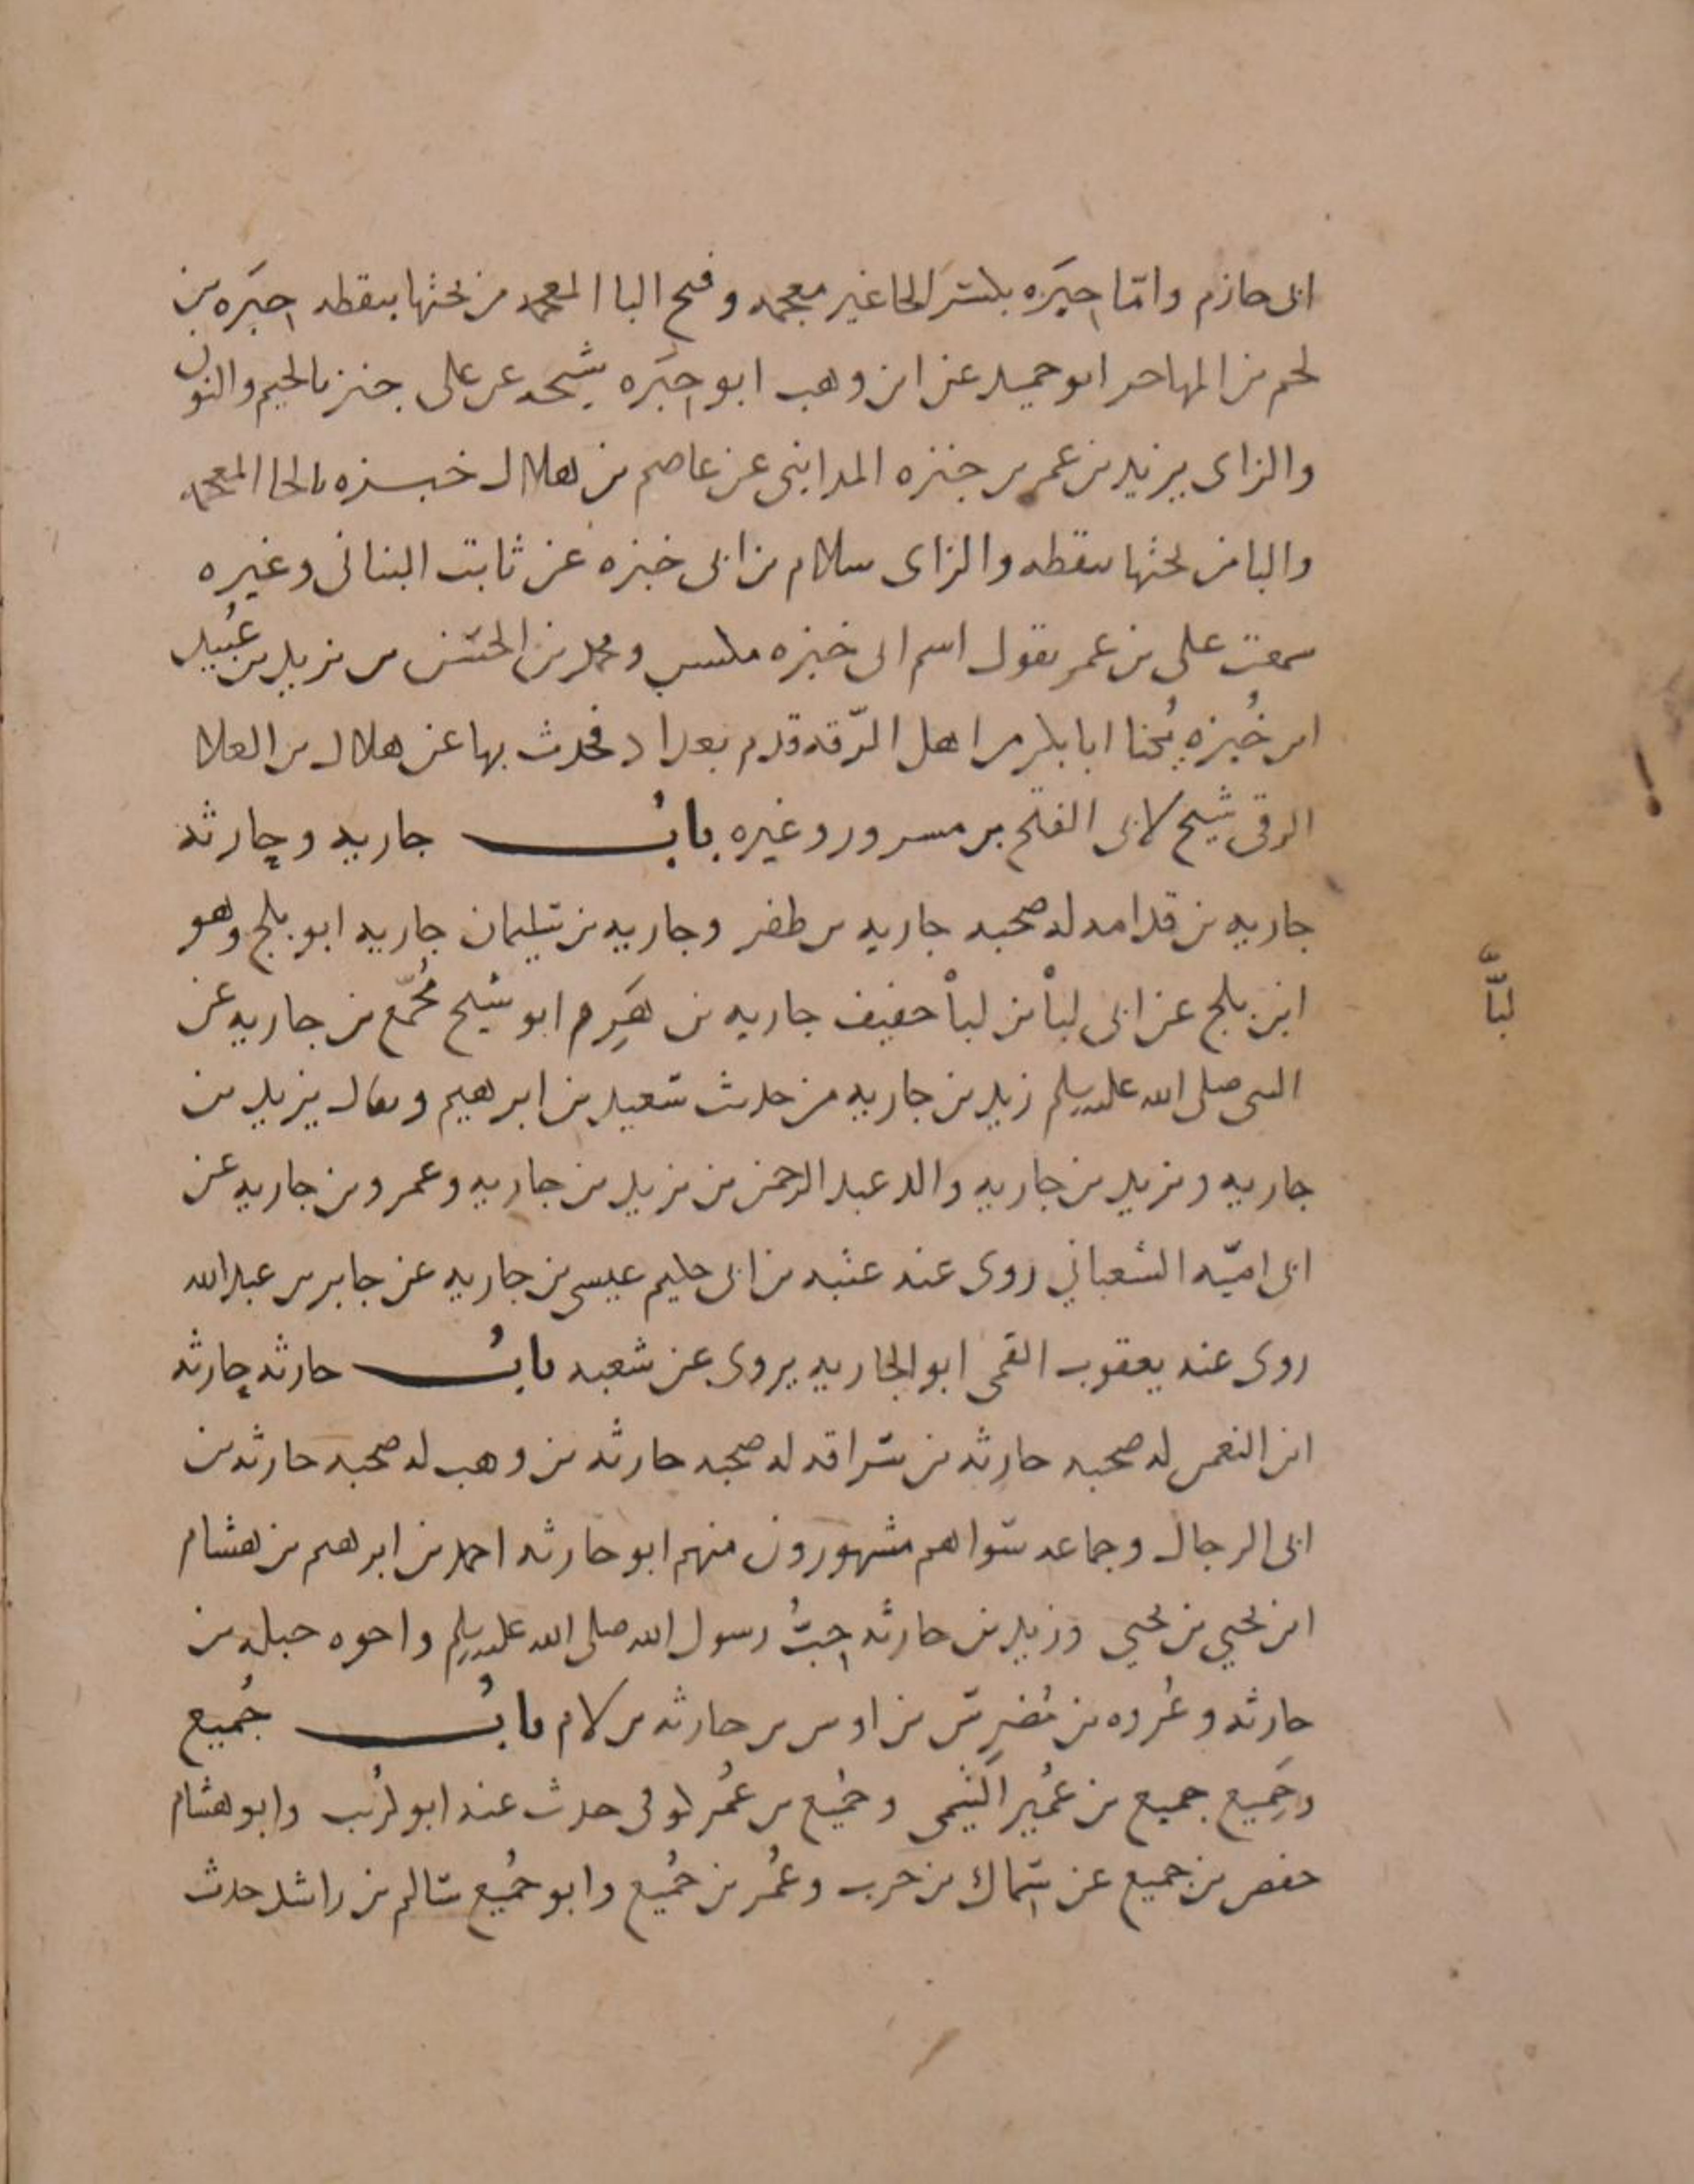 ابى حازم واما حبره بكسر الحا غير معجمه وفتح البا المعجمه من تحتها بنقطه حبره بن
لخم بن المهاجر ابو حميد عن ابن وهب ابو حبره شيحه عن على جنزه بالجيم والنون
والزاى يزيد بن عمر بن جنزه المدائنى عن عاصم بن هلال خبزه بالخا المعجمه
والبا من تحتها بنقطه والزاى سلام بن ابى خبزه عن ثابت البنانى وغيره
سمعت على بن عمر يقول اسم ابى خبزه مكيس ومحمد بن الحسن بن يزيد بن عبيد
ابن خبزه يكنا ابا بكر من اهل الرقه قدم بغداد فحدث بها عن هلال بن العلا
الرقى شيخ لابى الفتح بن مسرور وغيره باب جاريه وحارثه
جاريه بن قدامه له صحبه جاريه بن ظفر وجاريه بن سليمان جاريه ابو بلج وهو
ابن بلج عن ابى لبأ بن لبأ خفيف جاريه بن هرم ابو شيخ مجمع بن جاريه عن
النبى صلى الله عليه وسلم زيد بن جاريه من حديث سعيد بن ابرهيم ويقال يزيد بن
جاريه ويزيد بن جاريه والد عبد الرحمن بن يزيد بن جاريه وعمرو بن جاريه عن
ابى اميه الشعبانى روى عنه عتبه بن ابى حكيم عيسى بن جاريه عن جابر بن عبد الله
روى عنه يعقوب القمى ابو الجاريه يروى عن شعبه باب حارثه حارثه
ابن النعمن له صحبه حارثه بن سراقه له صحبه حارثه بن وهب له صحبه حارثه بن
ابى الرجال وجماعه سواهم مشهورون منهم ابو حارثه احمد بن ابرهيم بن هشام
ابن يحيى بن يحيى وزيد بن حارثه حب رسول الله صلى الله عليه وسلم واخوه جبله بن
حارثه وعروه بن مضرس بن اوس بن حارثه بن لام باب جميع
وجميع جميع بن عمير التيمى وجميع بن عمر كوفى حدث عنه ابو كريب وابو هشام
حفص بن جميع عن سماك بن حرب وعمر بن جميع وابو جميع سالم بن راشد حدث
لبأ